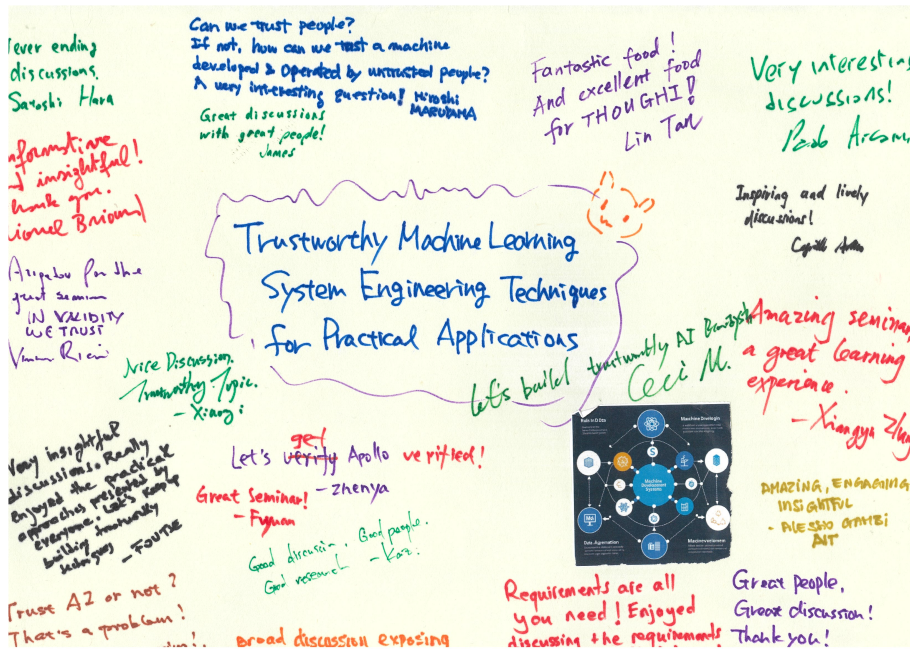 ever ending
discussions.
Satoshi Hara
Can we trust people?
If not, how can we trust a machine
developed & operated by untrusted people?
A very interesting question! Hiroshi
MARUYAMA
Great discussions
with great people!
James
Fantastic food!
And excellent food
for THOUGHT!
Lin Tan
Very interesting
discussions!
Paolo
nformative
insightful!
hank you.
ionel Briand
Inspiring and lively
discussions!
Trustworthy Machine Learning
System Engineering Techniques
for Practical Applications
Arigatou for the
great seminar
IN VALIDITY
WE TRUST
Nice Discussion.
Trustworthy Topic.
- Xiaoyi
Let's build trustworthy AI
Ceci M.
Amazing seminar,
a great learning
experience.
- Xiangyu
Very insightful
discussions. Really
Enjoyed the practical
approaches presented by
everyone. Let's keep
building trustworthy
get
Let's verify Apollo verified!
- Zhenya
Great Seminar!
- Fuyuan
Good discussion, Good people.
Good research - Kazi
Machine
Development
Systems
AMAZING, ENGAGING
INSIGHTFUL
- ALESSIO GAMBI
AIT
Trust AI or not?
That's a problem!
Broad discussion exposing
Requirements are all
you need! Enjoyed
discussing the requirements
Great people,
Great discussion!
Thank you!